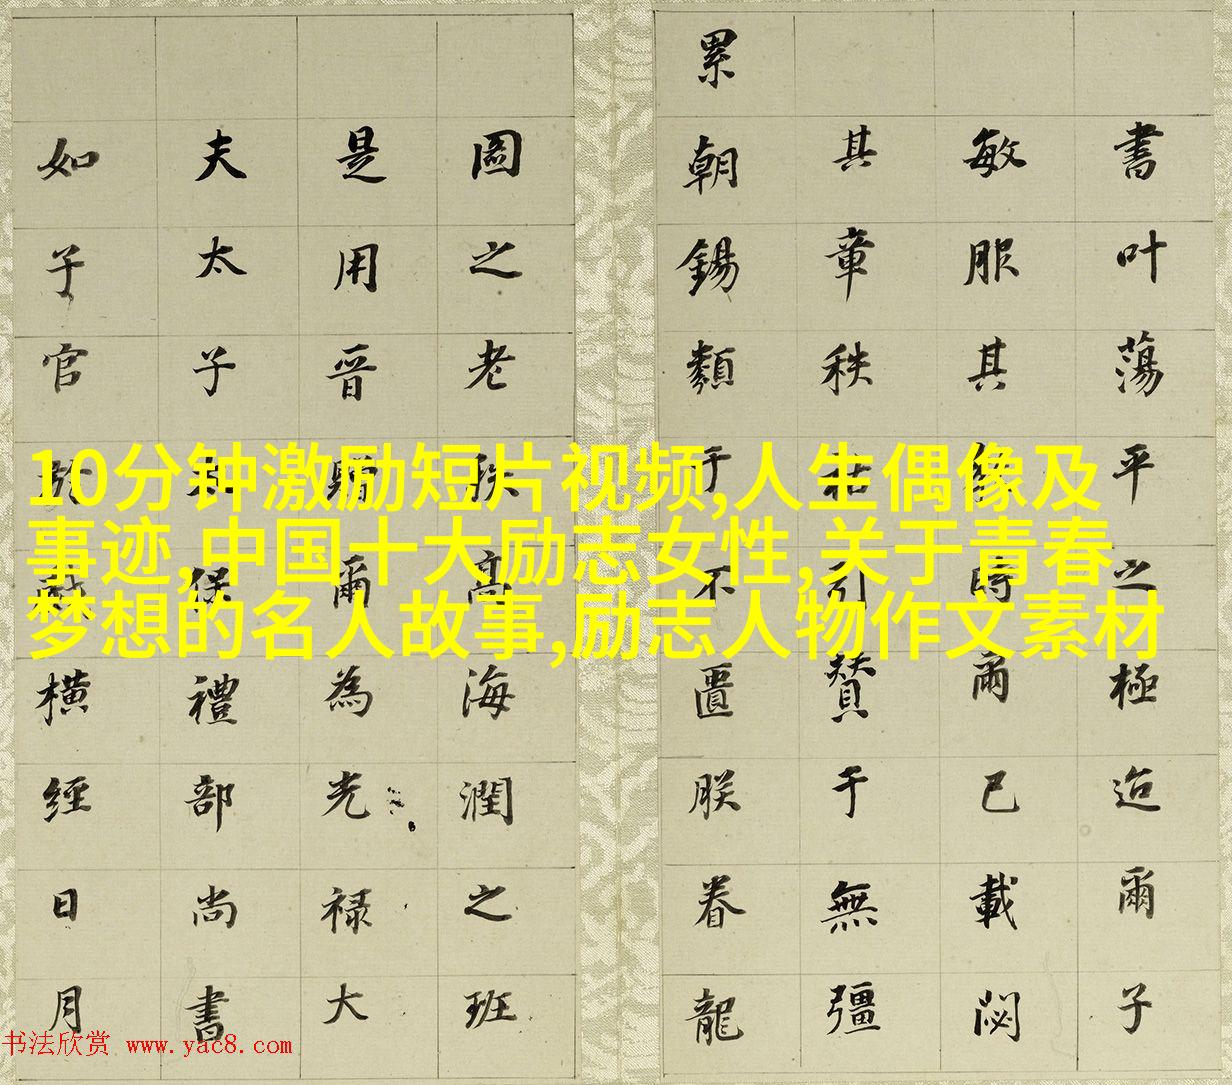 書叶蕩平之極迨爾子
敏服其時爾已載閟
其章秩引贊于無彊
累朝錫類于不匱朕眷龍
圖之老秩高海潤之班
是用晉爾為光祿大
夫太子太保禮部尚書
如子官橫經日月
10分钟激励短片视频,人生偶像及
事迹,中国十大励志女性,关于青春
梦想的名人故事,励志人物作文素材
书法欣赏 www.yac8.com